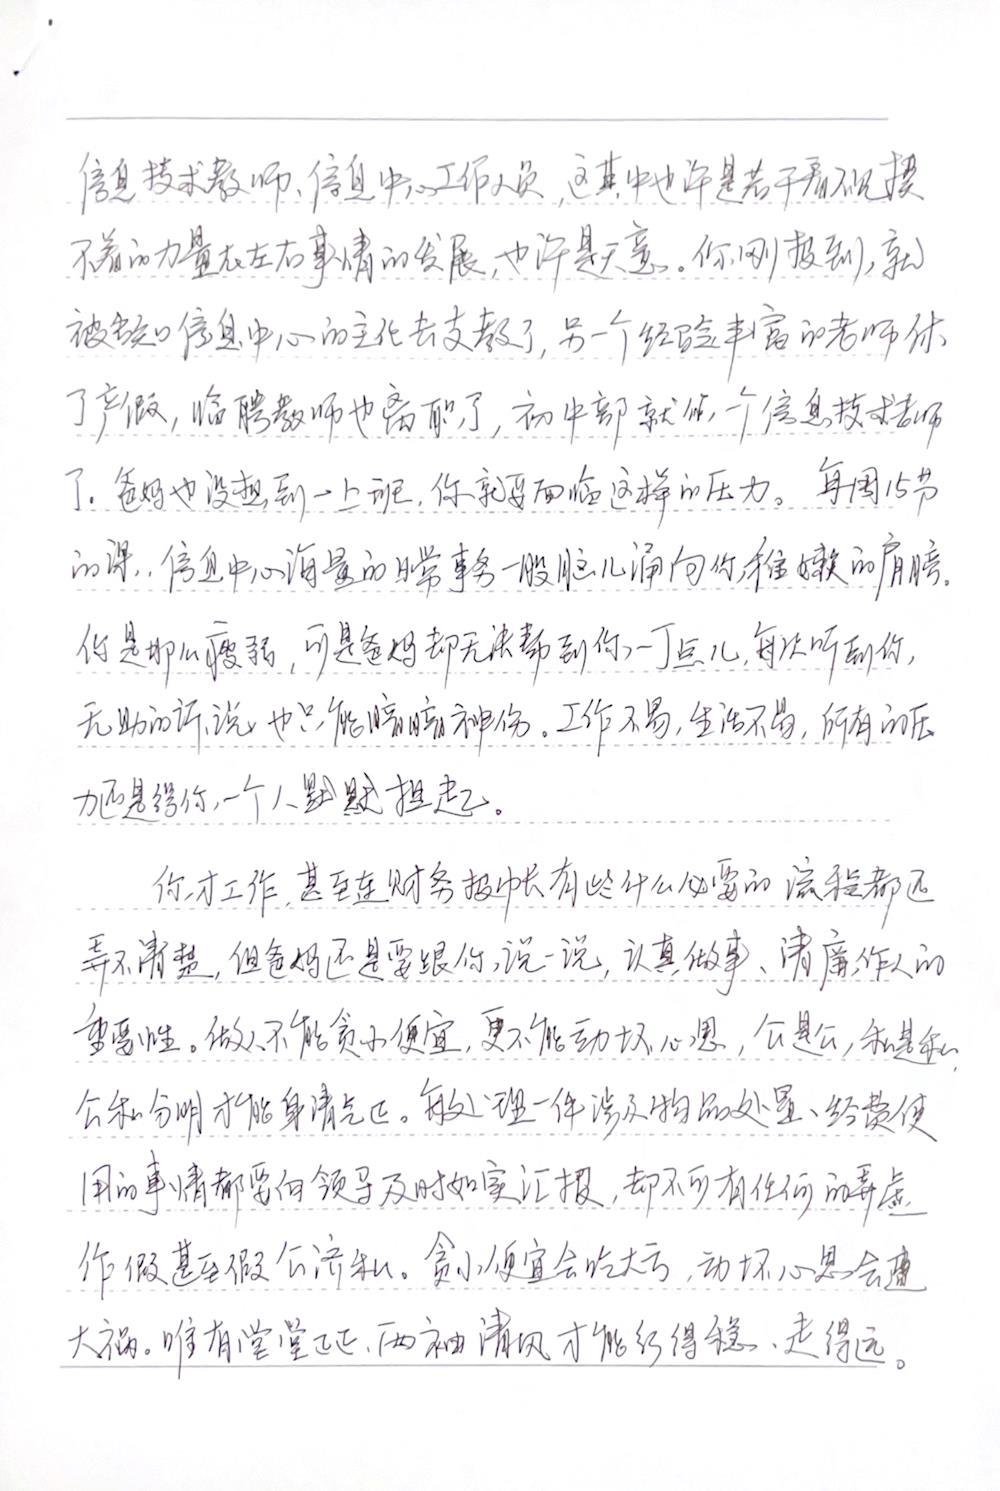 信息技术教师、信息中心工作人员，这其中也许是若干看不见摸
不着的力量在左右事情的发展，也许是天意。你刚报到，就
被告知信息中心的主任去支教了，另一个经验丰富的老师休
了产假，临聘教师也离职了，初中部就你一个信息技术老师
了。爸妈也没想到一上班，你就要面临这样的压力。每周15节
的课，信息中心海量的日常事务一股脑儿涌向你稚嫩的肩膀。
你是那么疲弱，可是爸妈却无法帮到你一丁点儿，每次听到你
无助的诉说，也只能暗暗神伤。工作不易，生活不易，所有的压
力还是得你一个人默默担起。
你才工作，甚至连财务报中长有些什么必要的流程都还
弄不清楚，但爸妈还是要跟你说一说，认真做事、清廉作人的
重要性。做人不能贪小便宜，更不能动坏心思，公是公，私是私，
公私分明才能身清气正。每处理一件涉及物品处置、经费使
用的事情都要向领导及时如实汇报，却不可有任何的弄虚
作假甚至假公济私。贪小便宜会吃大亏，动坏心思会遭
大祸。唯有堂堂正正、两袖清风才能行得稳、走得远。